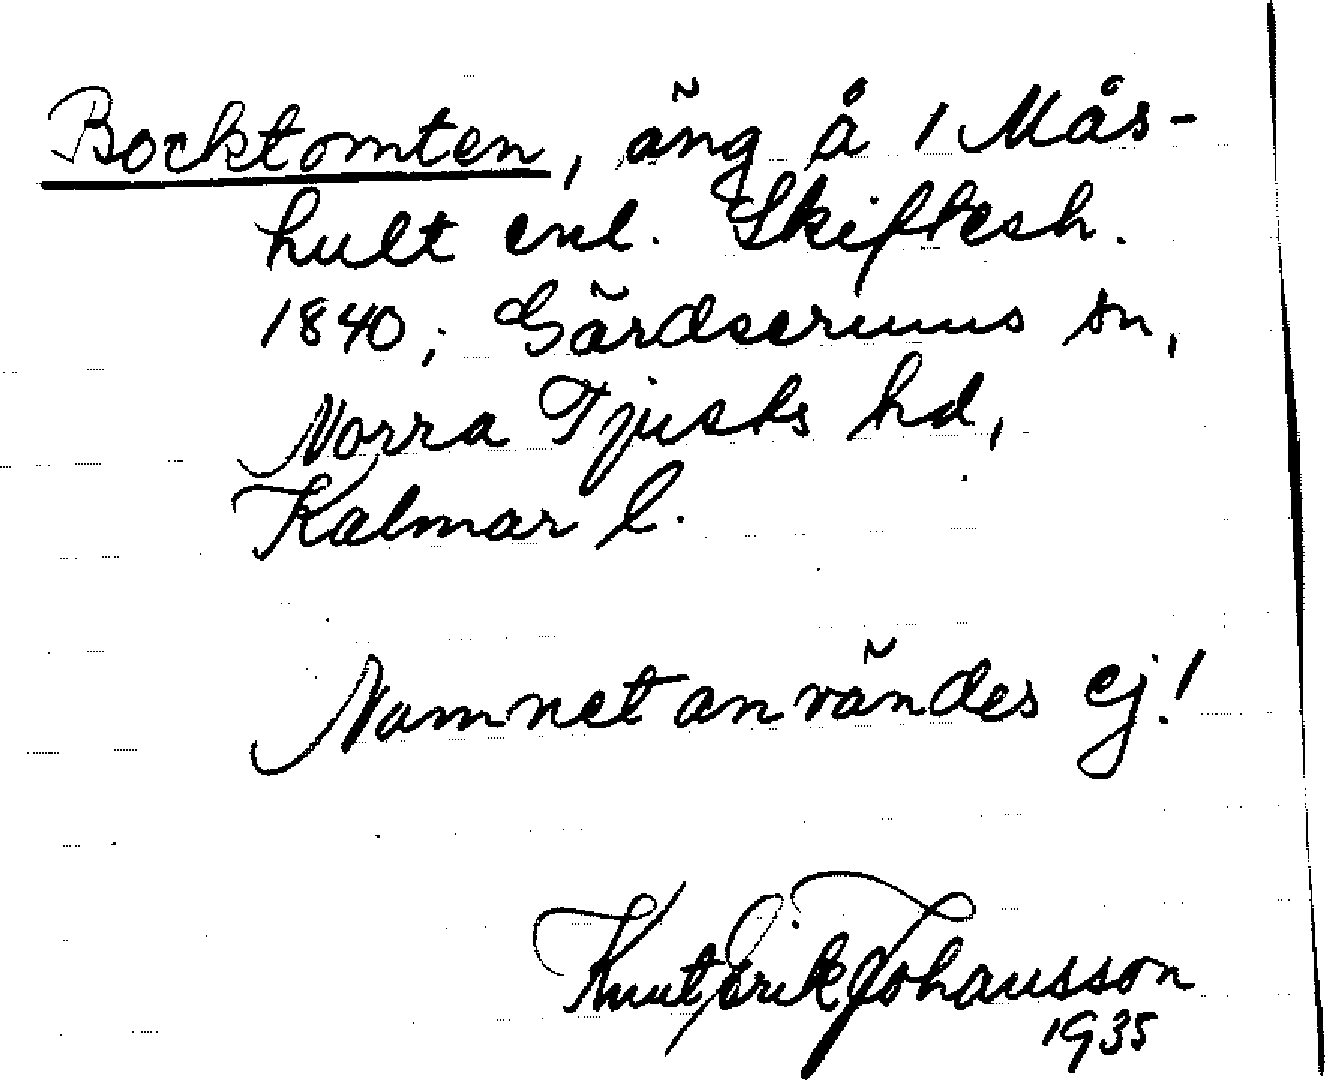 Bocktomten, äng å 1 Mås-
hult enl. Skiftesh.
1840; Gärdserums sn,
Norra Tjusts hd,
Kalmar l.
Namnet användes ej!
Knut Erik Johansson
1935